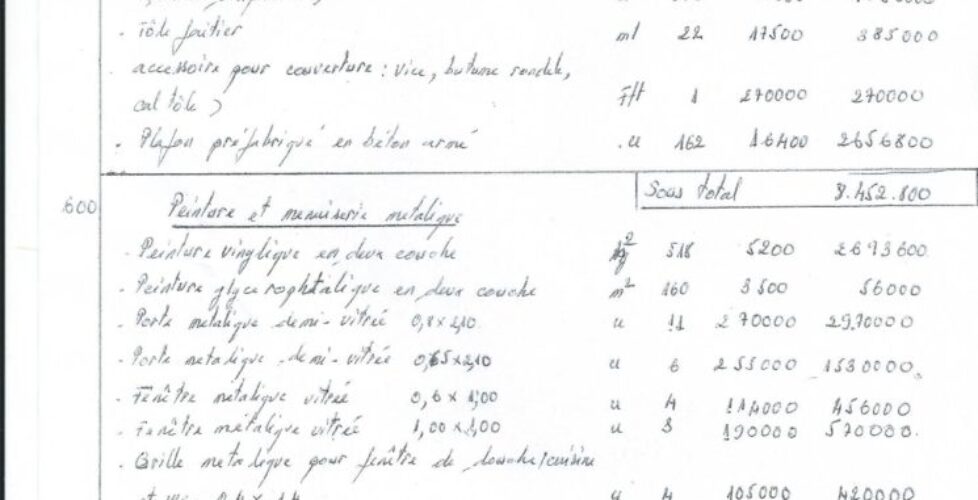 . Tôle faitier ml 22 17500 385000
. accessoire pour couverture : vice, butume rondele,
cal tôle ) Fft 1 270000 270000
. Plafon préfabriqué en béton armé .u 162 16400 2656800
Sous total 8.452.800
600 Peinture et menuiserie metalique
. Peinture vinylique en deux couche m² 518 5200 2693600.
. Peinture glycerophtalique en deux couche m² 160 3500 56000
. Porte metalique demi-vitrée 0,8 x 2,10 u 11 270000 2970000
. Porte metalique demi-vitrée 0,65 x 2,10 u 6 255000 1530000.
. Fenêtre metalique vitrée 0,6 x 1,00 u 4 114000 456000
. Fenêtre métalique vitrée 1,00 x 1,00 u 3 190000 570000.
. Grille metalique pour fenêtre de douche/cuisine
u 4 105000 420000